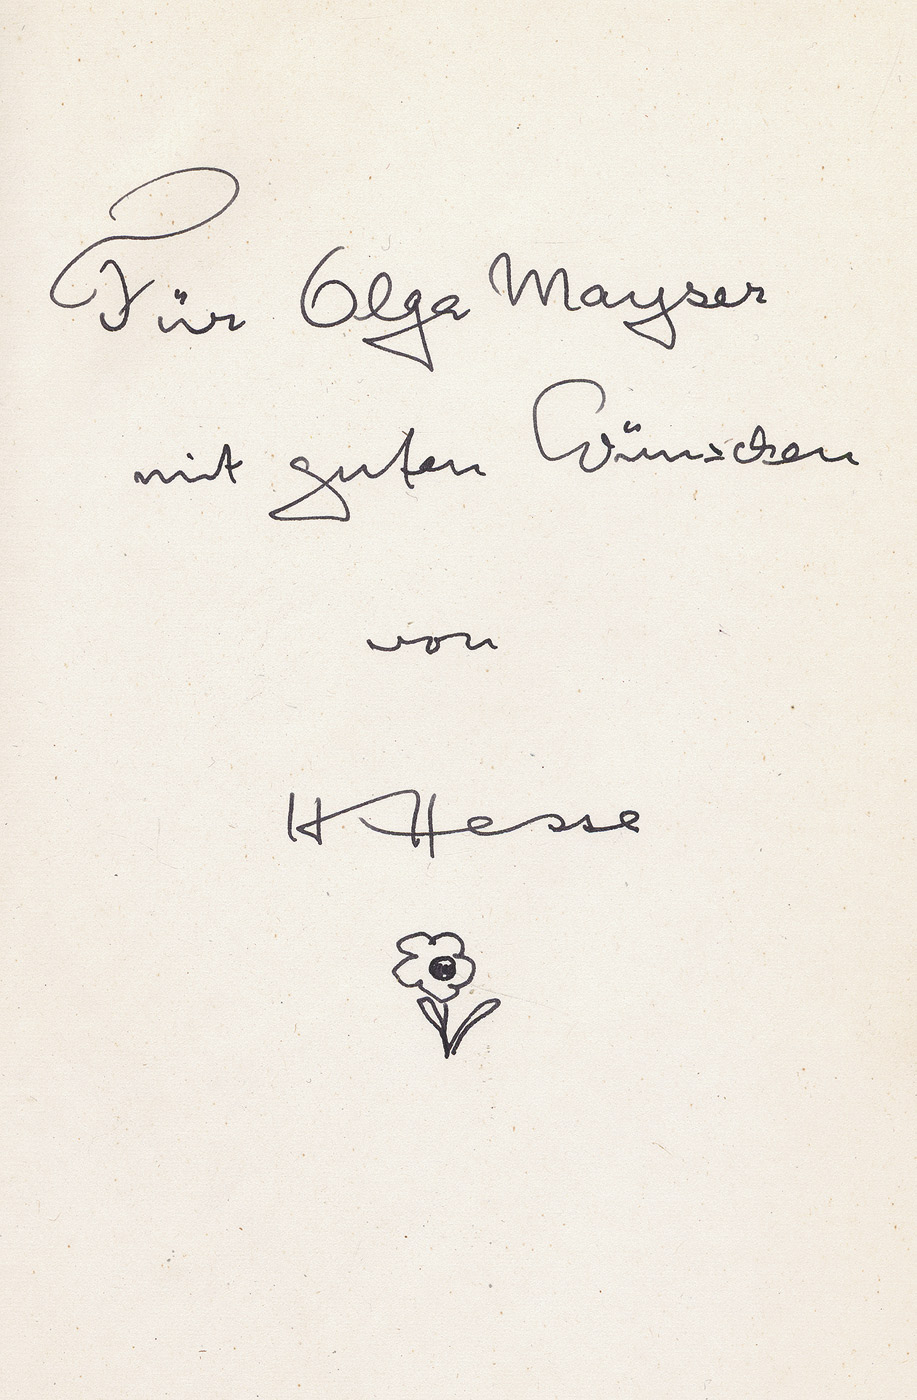 Für Olga Mayser
mit guten Wünschen
von
H Hesse